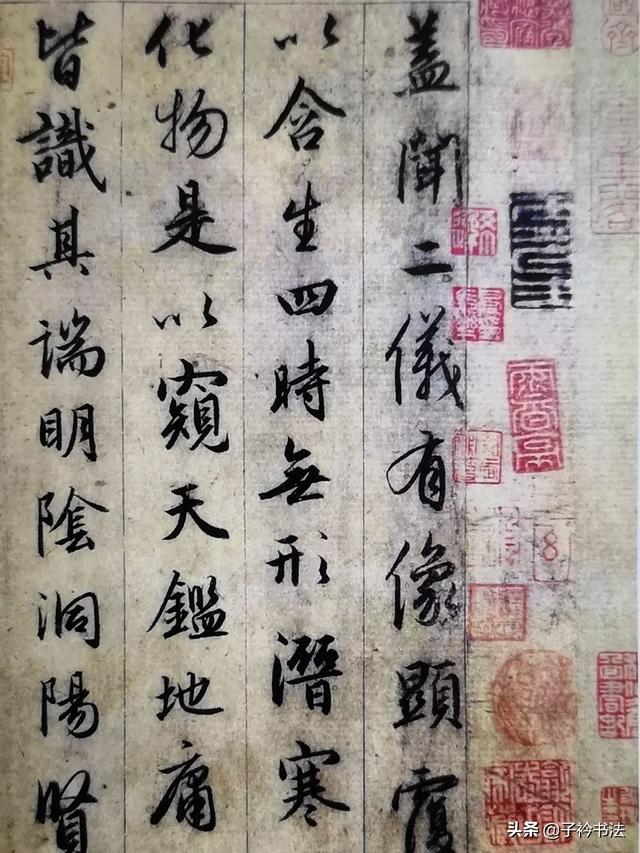 蓋聞二儀有像顯覆
以含生四時無形潛寒
化物是以窺天鑑地庸
皆識其端明陰洞陽賢
8
头条 @子衿书法